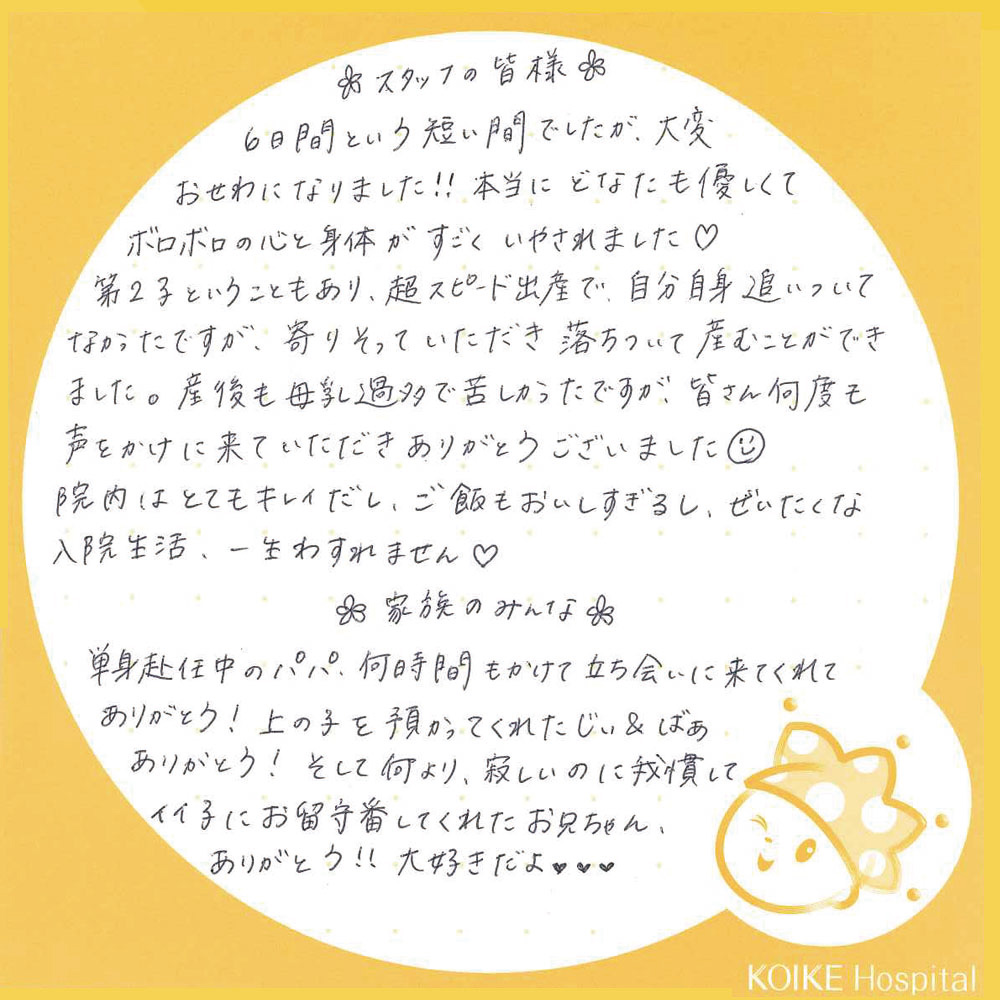 スタッフの皆様
6日間という短い間でしたが、大変
おせわになりました!! 本当にどなたも優しくて
ボロボロの心と身体がすごくいやされました♡
第2子ということもあり、超スピード出産で、自分自身追いついて
なかったですが、寄りそっていただき落ちついて産むことができ
ました。産後も母乳過多で苦しかったですが、皆さん何度も
声をかけに来ていただきありがとうございました☺
院内はとてもキレイだし、ご飯もおいしすぎるし、ぜいたくな
入院生活、一生わすれません♡
家族のみんな
単身赴任中のパパ、何時間もかけて立ち会いに来てくれて
ありがとう! 上の子を預かってくれたじぃ&ばぁ
ありがとう! そして何より、寂しいのに我慢して
イイ子にお留守番してくれたお兄ちゃん、
ありがとう!! 大好きだよ♥♥♥
KOIKE Hospital